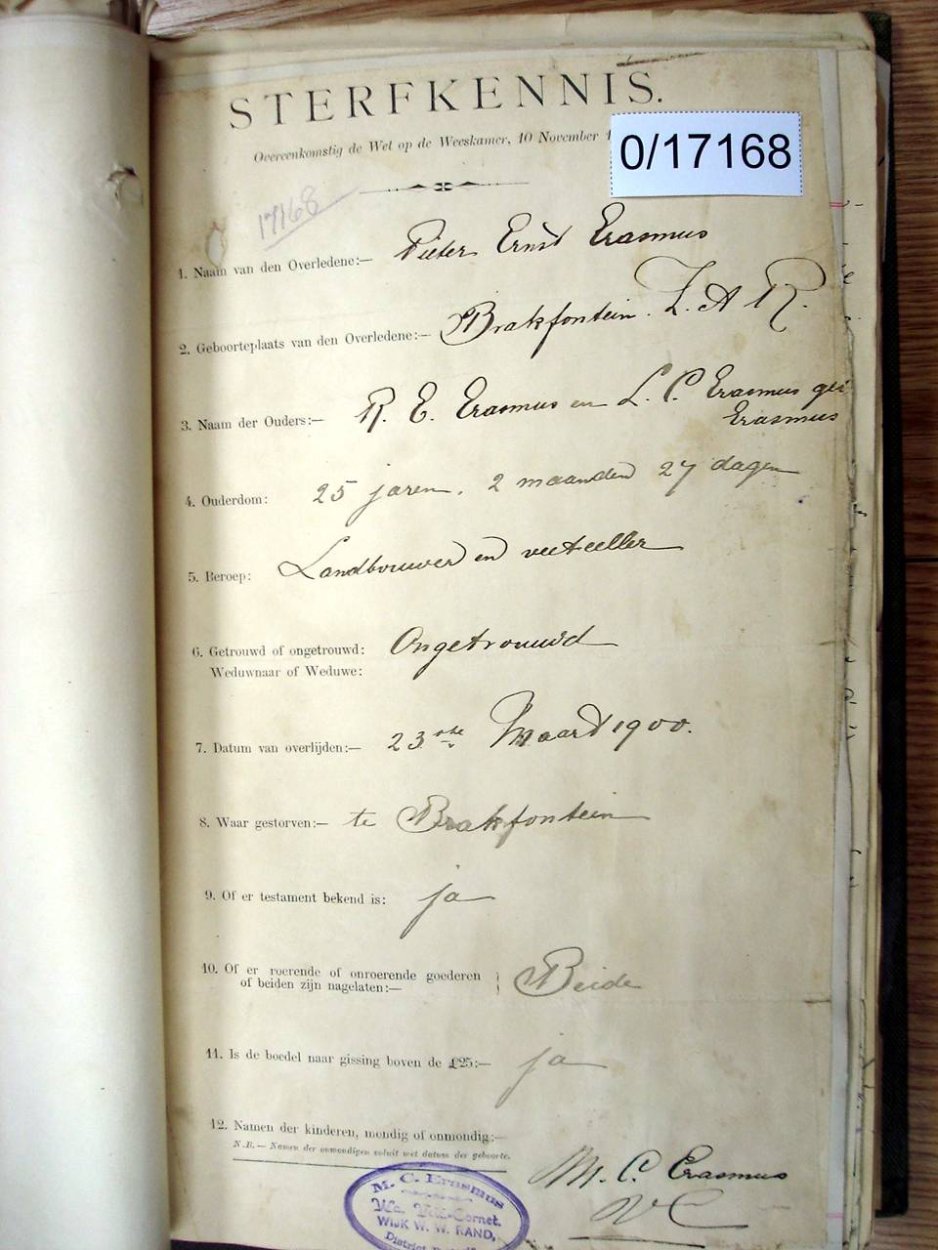 STERFKENNIS.
Overeenkomstig de Wet op de Weeskamer, 10 November
0/17168
17168
1. Naam van den Overledene:— Pieter Ernst Erasmus
2. Geboorteplaats van den Overledene:— Brakfontein. Z. A R.
3. Naam der Ouders:— R. E. Erasmus en L. C. Erasmus geb
Erasmus
4. Ouderdom: 25 jaren, 2 maanden 27 dagen
5. Beroep: Landbouwer en veeteeller
6. Getrouwd of ongetrouwd: Ongetrouwd
Weduwnaar of Weduwe:
7. Datum van overlijden:— 23ste Maart 1900.
8. Waar gestorven:— te Brakfontein
9. Of er testament bekend is: ja
10. Of er roerende of onroerende goederen
of beiden zijn nagelaten:— } Beide
11. Is de boedel naar gissing boven de £25:— ja
12. Namen der kinderen, mondig of onmondig:—
N.B. — Namen der onmondigen voluit met datum der geboorte.
M. C. Erasmus
VC
M. C. Erasmus
Veld-Cornet.
WIJK W. W. RAND,
District